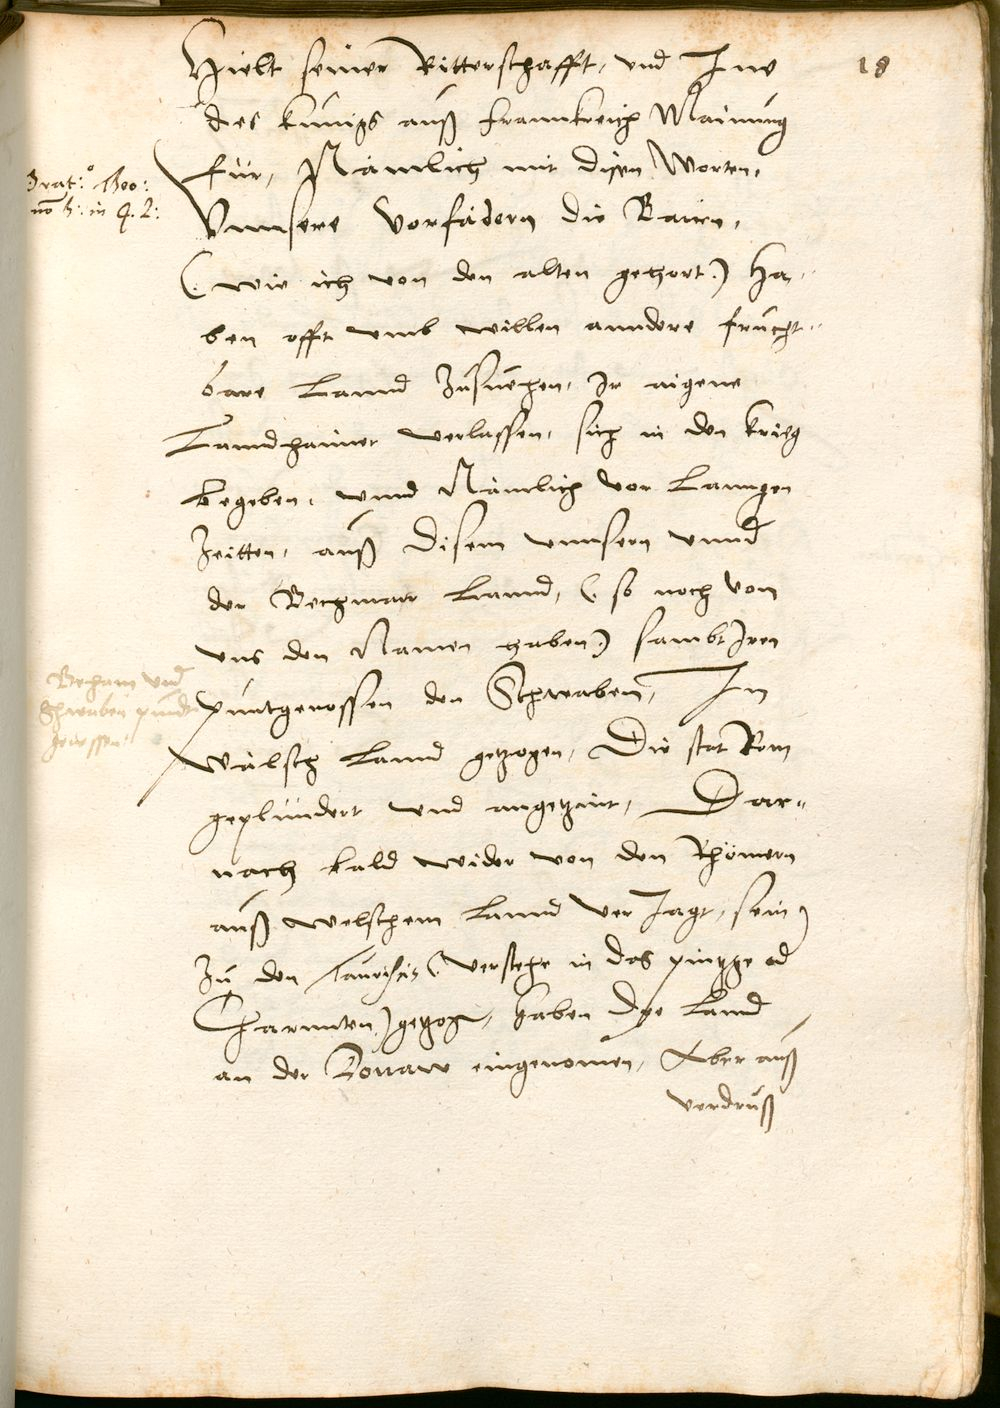 18
Hielt seiner Ritterschafft, und Ine
des kunigs auß Frannkreich Mainung
für, Nämlich mit disen Worten,
Vnnsere Vorfädern die Bairn,
(wie ich von den alten gehort) Ha-
ben offt umb willen anndere frucht-
bare Lannd Zusuechen, Ir aigene
Lanndhaimer verlassen, sich in den krieg
begeben, unnd Nämlich vor Lanngen
Zeitten, auß disem unnsern unnd
der Bechmarr Lannd, (so noch von
uns den Namen haben) sambt Iren
puntgenossen den Schwaben, In
Wälsch Lannd getzogen, Die stat Rom
geplündert und angetzint, Dar-
nach bald wider von den Rhömern
auß welschem Lannd ver Jagt, sein
Zu den Tauriscis (verstehe in das pintzge od
Charnnten) getzogen, haben dye Land
an der Tonaw eingenomen, Aber auß
verdruß
Orat:o Theo:
Beham und
Schwaben pundt
genossen